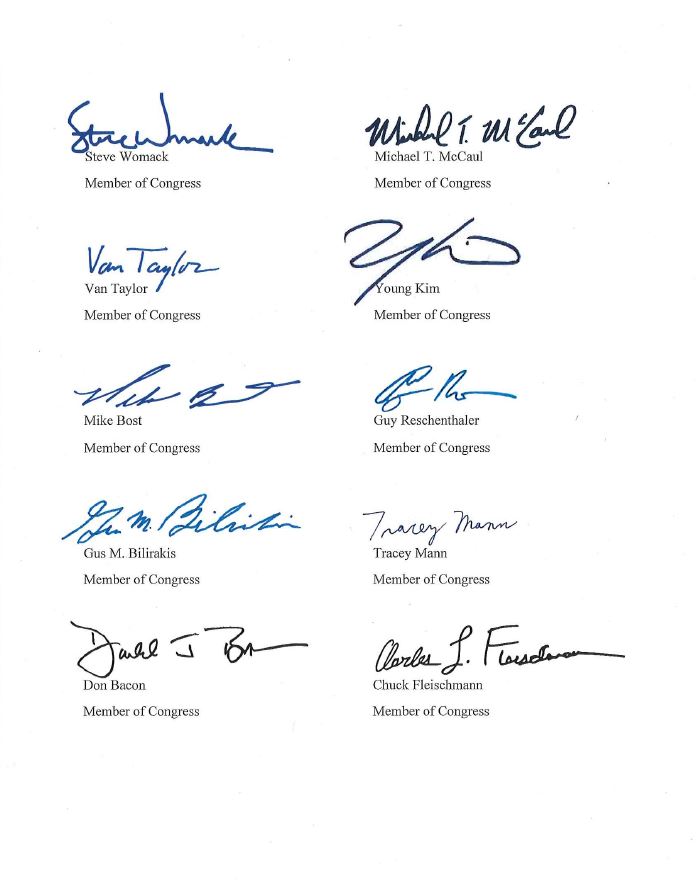 Steve Womack Michael T. McCaul
Steve Womack Michael T. McCaul
Member of Congress Member of Congress
Van Taylor
Van Taylor Young Kim
Member of Congress Member of Congress
Mike Bost
Mike Bost Guy Reschenthaler
Member of Congress Member of Congress
Gus M. Bilirakis Tracey Mann
Gus M. Bilirakis Tracey Mann
Member of Congress Member of Congress
Charles J. Fleischmann
Don Bacon Chuck Fleischmann
Member of Congress Member of Congress